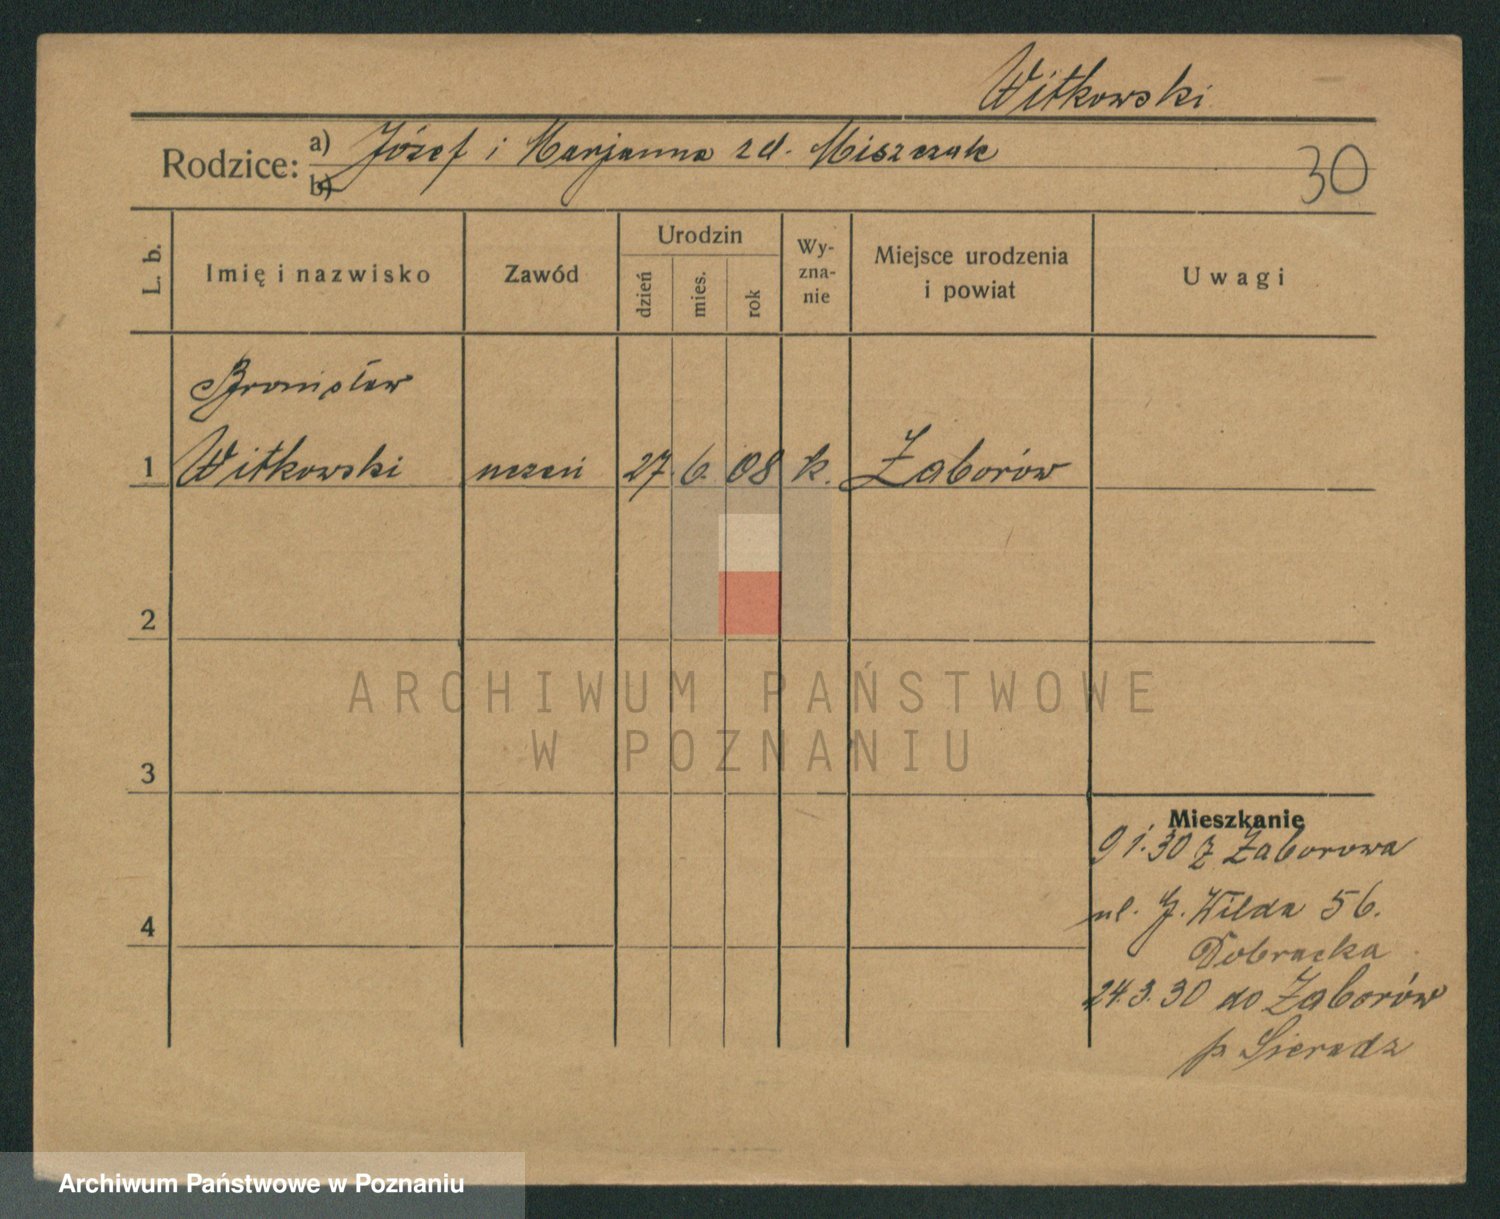 Witkowski
Rodzice: a) Józef i Marjanna zd. Miszczak
b)
30
L. b.
Imię i nazwisko
Zawód
Urodzin
dzień
mies.
rok
Wy-
zna-
nie
Miejsce urodzenia
i powiat
Uwagi
Bronisław
1 Witkowski uczeń 27. 6. 08 k. Zaborów
2
3
4
Mieszkanie
9 1. 30 z Zaborowa
ul. G. Wilda 56.
24. 3. 30 do Zaborów
p. Sieradz
ARCHIWUM PAŃSTWOWE
W POZNANIU
Archiwum Państwowe w Poznaniu